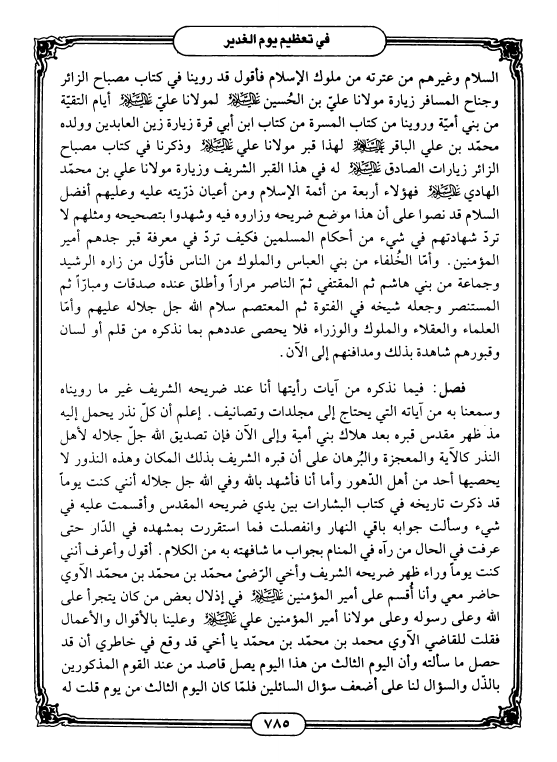 في تعظيم يوم الغدير
السلام وغيرهم من عترته من ملوك الإسلام فأقول قد روينا في كتاب مصباح الزائر
وجناح المسافر زيارة مولانا عليّ بن الحُسين عليه السلام لمولانا عليّ عليه السلام أيام التقيّة
من بني أميّة وروينا من كتاب المسرة من كتاب ابن أبي قرة زيارة زين العابدين وولده
محمّد بن علي الباقر عليه السلام لهذا قبر مولانا علي عليه السلام وذكرنا في كتاب مصباح
الزائر زيارات الصادق عليه السلام له في هذا القبر الشريف وزيارة مولانا علي بن محمّد
الهادي عليه السلام فهؤلاء أربعة من أئمة الإسلام ومن أعيان ذرّيته عليه وعليهم أفضل
السلام قد نصوا على أن هذا موضع ضريحه وزاروه فيه وشهدوا بتصحيحه ومثلهم لا
تردّ شهادتهم في شيء من أحكام المسلمين فكيف تردّ في معرفة قبر جدهم أمير
المؤمنين. وأمّا الخُلفاء من بني العباس والملوك من الناس فأوّل من زاره الرشيد
وجماعة من بني هاشم ثم المقتفي ثمّ الناصر مراراً وأطلق عنده صدقات ومبارّاً ثم
المستنصر وجعله شيخه في الفتوة ثم المعتصم سلام الله جل جلاله عليهم وأمّا
العلماء والعقلاء والملوك والوزراء فلا يحصى عددهم بما نذكره من قلم أو لسان
وقبورهم شاهدة بذلك ومدافنهم إلى الآن.
فصل: فيما نذكره من آيات رأيتها أنا عند ضريحه الشريف غير ما رويناه
وسمعنا به من آياته التي يحتاج إلى مجلدات وتصانيف. إعلم أن كلّ نذر يحمل إليه
مذ ظهر مقدس قبره بعد هلاك بني أمية وإلى الآن فإن تصديق الله جلّ جلاله لأهل
النذر كالآية والمعجزة والبُرهان على أن قبره الشريف بذلك المكان وهذه النذور لا
يحصيها أحد من أهل الدّهور وأما أنا فأشهد بالله وفي الله جل جلاله أنني كنت يوماً
قد ذكرت تاريخه في كتاب البشارات بين يدي ضريحه المقدس وأقسمت عليه في
شيء وسألت جوابه باقي النهار وانفصلت فما استقررت بمشهده في الدّار حتى
عرفت في الحال من رآه في المنام بجواب ما شافهته به من الكلام. أقول وأعرف أنني
كنت يوماً وراء ظهر ضريحه الشريف وأخي الرّضيّ محمّد بن محمّد بن محمّد الآوي
حاضر معي وأنا أُقسم على أمير المؤمنين عليه السلام في إذلال بعض من كان يتجرأ على
الله وعلى رسوله وعلى مولانا أمير المؤمنين علي عليه السلام وعلينا بالأقوال والأعمال
فقلت للقاضي الآوي محمد بن محمّد بن محمّد يا أخي قد وقع في خاطري أن قد
حصل ما سألته وأن اليوم الثالث من هذا اليوم يصل قاصد من عند القوم المذكورين
بالذّل والسؤال لنا على أضعف سؤال السائلين فلمّا كان اليوم الثالث من يوم قلت له
٧٨٥